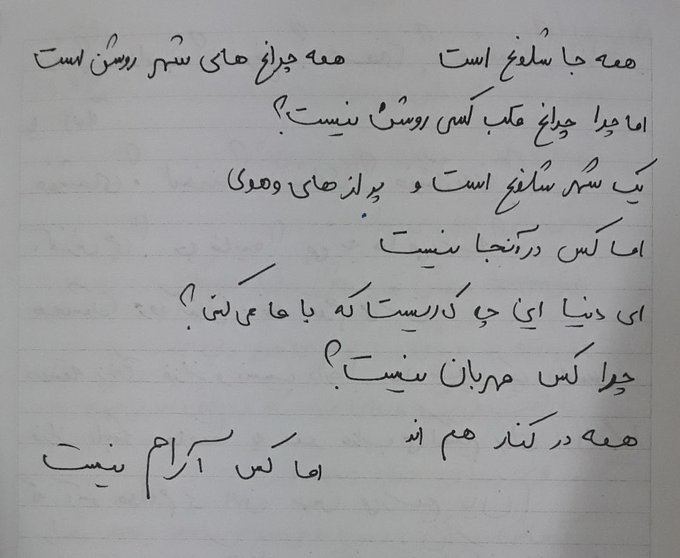 همه جا شلوغ است همه چراغ های شهر روشن است
اما چرا چراغ قلب کسی روشن نیست؟
یک شهر شلوغ است و پر از های و هوی
اما کس در آنجا نیست
ای دنیا این چه کاریست که با ما می کنی؟
چرا کس مهربان نیست؟
همه در کنار هم اند
اما کس آرام نیست